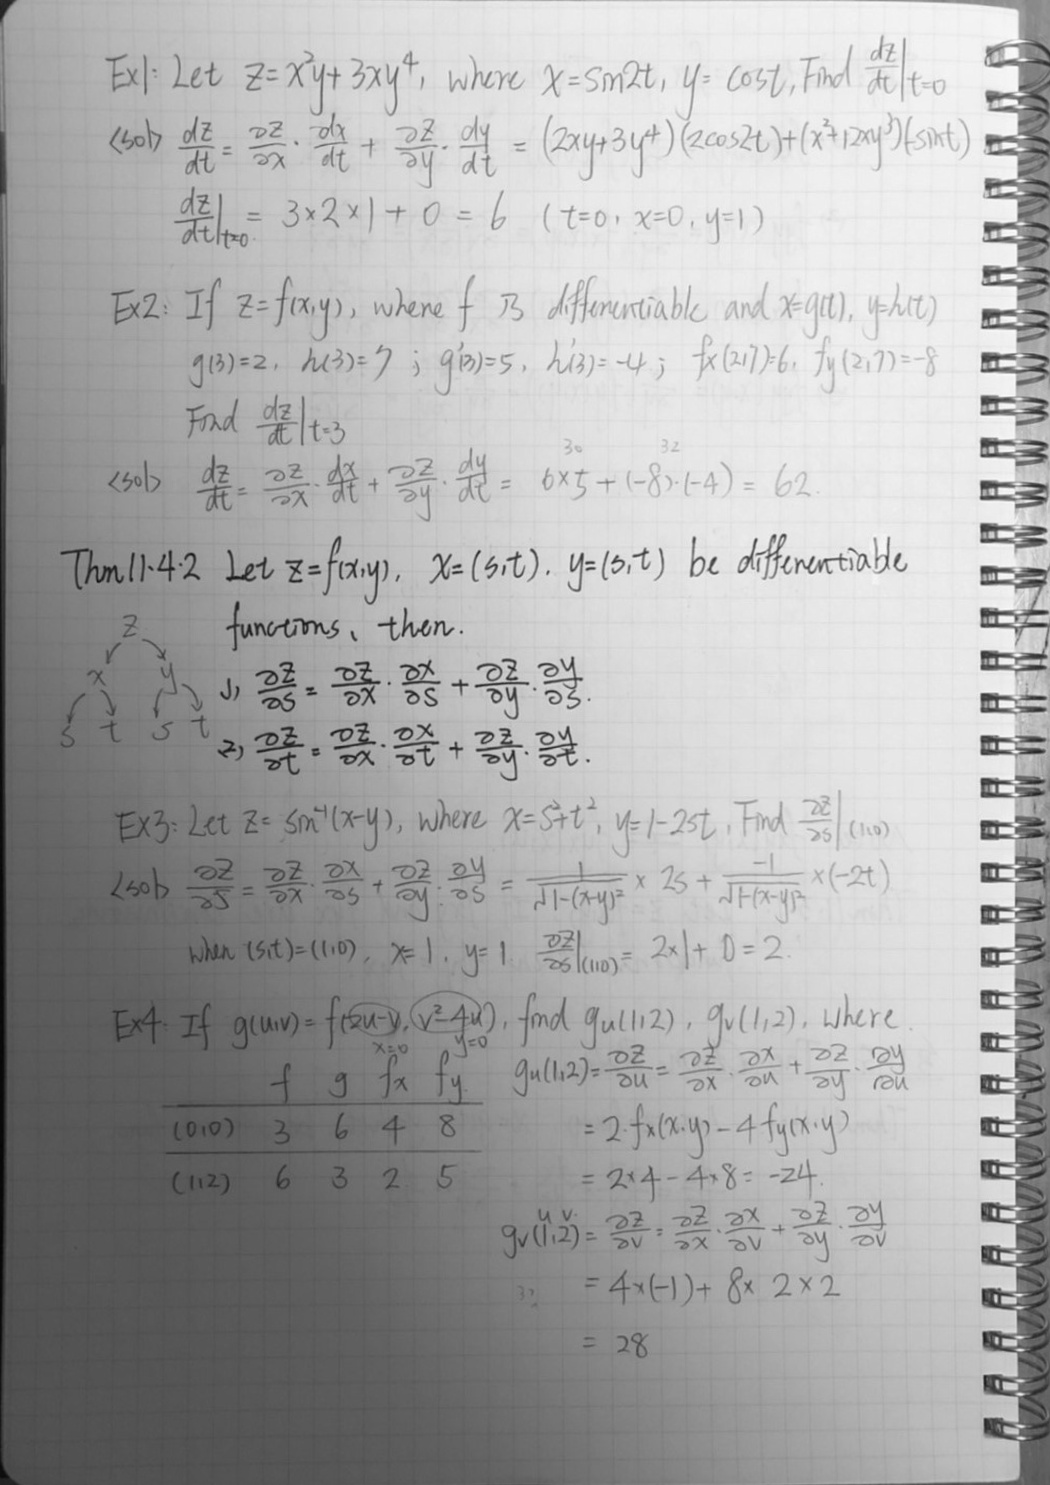 Ex1: Let z=x²y+3xy⁴, where x=sin2t, y=cost, Find dz/dt|t=0
<sol> dz/dt = ∂z/∂x · dx/dt + ∂z/∂y · dy/dt = (2xy+3y⁴)(2cos2t)+(x²+12xy³)(-sint)
dz/dt|t=0 = 3×2×1+0 = 6 (t=0, x=0, y=1)
Ex2: If z=f(x,y), where f is differentiable and x=g(t), y=h(t)
g(3)=2, h(3)=7; g'(3)=5, h'(3)=-4; fx(2,7)=6, fy(2,7)=-8
Find dz/dt|t=3
30 32
<sol> dz/dt = ∂z/∂x · dx/dt + ∂z/∂y · dy/dt = 6×5+(-8)·(-4) = 62.
Thm 11.4.2 Let z=f(x,y), x=(s,t), y=(s,t) be differentiable
functions, then.
z
x y
s t s t
1) ∂z/∂s = ∂z/∂x · ∂x/∂s + ∂z/∂y · ∂y/∂s.
2) ∂z/∂t = ∂z/∂x · ∂x/∂t + ∂z/∂y · ∂y/∂t.
Ex3: Let z=sin⁻¹(x-y), where x=s²+t², y=1-2st, Find ∂z/∂s|(1,0)
<sol> ∂z/∂s = ∂z/∂x · ∂x/∂s + ∂z/∂y · ∂y/∂s = 1/√1-(x-y)² × 2s + -1/√1-(x-y)² ×(-2t)
when (s,t)=(1,0), x=1, y=1 ∂z/∂s|(1,0) = 2×1+0=2.
Ex4: If g(u,v)=f(2u-v, v²-4u), find gu(1,2), gv(1,2), where.
x=0 y=0
f g fx fy
(0,0) 3 6 4 8
(1,2) 6 3 2 5
gu(1,2)=∂z/∂u = ∂z/∂x · ∂x/∂u + ∂z/∂y · ∂y/∂u
=2·fx(x,y)-4fy(x,y)
=2×4-4×8=-24.
u v
gv(1,2)=∂z/∂v = ∂z/∂x · ∂x/∂v + ∂z/∂y · ∂y/∂v
=4×(-1)+8×2×2
32
=28